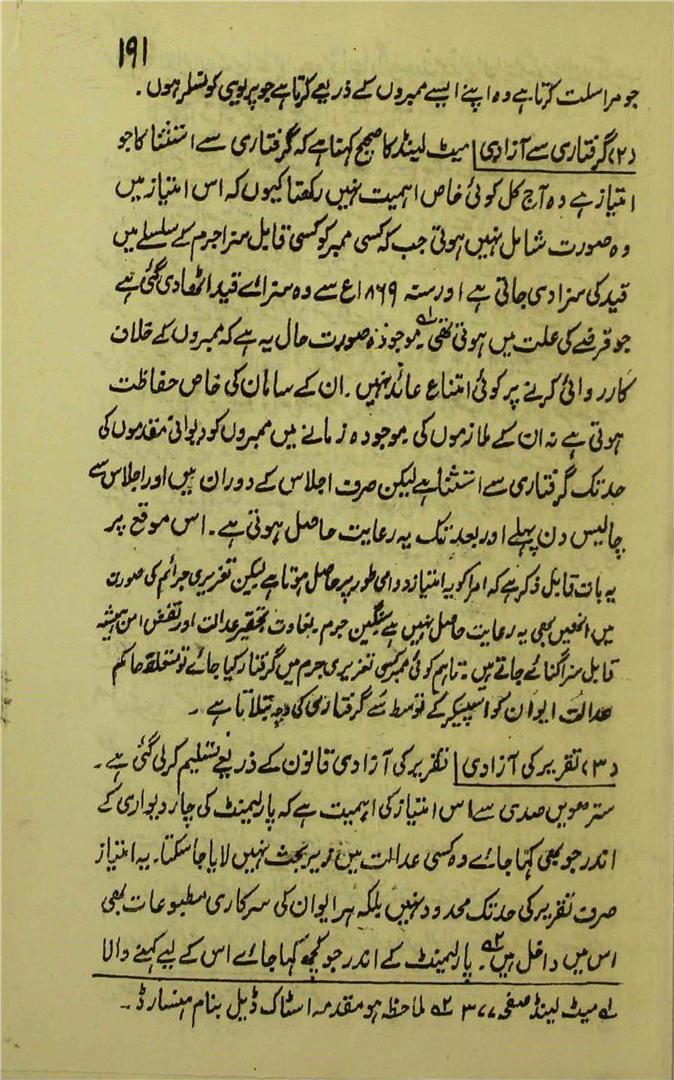 ۱۹۱
جو مراسلت کرتا ہے وہ اپنے ایسے ممبروں کے ذریعے کرتا ہے جو پریوی کونسلر ہوں ۔
(۲) گرفتاری سے آزادی | میٹ لینڈ کا صحیح کہنا ہے کہ گرفتاری سے استثنا کا جو
امتیاز ہے وہ آج کل کوئی خاص اہمیت نہیں رکھتا کیوں کہ اس امتیاز میں
وہ صورت شامل نہیں ہوتی جب کہ کسی ممبر کو کسی قابل سزا جرم کے سلسلے میں
قید کی سزا دی جاتی ہے اور سنہ ۱۸۶۹ع سے وہ سزائے قید اٹھا دی گئی ہے
جو قرضے کی علت میں ہوتی تھی ۱ے۔ موجودہ صورت حال یہ ہے کہ ممبروں کے خلاف
کارروائی کرنے پر کوئی امتناع عائد نہیں ۔ ان کے سامان کی خاص حفاظت
ہوتی ہے نہ ان کے ملازموں کی ۔ موجودہ زمانے میں ممبروں کو دیوانی مقدموں کی
حد تک گرفتاری سے استثنا ہے لیکن صرف اجلاس کے دوران میں اور اجلاس سے
چالیس دن پہلے اور بعد تک یہ رعایت حاصل ہوتی ہے ۔ اس موقع پر
یہ بات قابل ذکر ہے کہ امرا کو یہ امتیاز دوامی طور پر حاصل ہوتا ہے لیکن تعزیری جرائم کی صورت
میں انھیں بھی یہ رعایت حاصل نہیں ہے سنگین جرم ۔ بغاوت تحقیر عدالت اور نقض امن ہمیشہ
قابل سزا گنائے جاتے ہیں ۔ تاہم کوئی ممبر کسی تعزیری جرم میں گرفتار کیا جائے تو متعلقہ حاکم
عدالت ایوان کو اسپیکر کے توسط سے گرفتاری کی وجہ بتلاتا ہے ۔
(۳) تقریر کی آزادی | تقریر کی آزادی قانون کے ذریعے تسلیم کرلی گئی ہے ۔
سترھویں صدی سے اس امتیاز کی اہمیت ہے کہ پارلیمنٹ کی چار دیواری کے
اندر جو بھی کہا جائے وہ کسی عدالت میں زیر بحث نہیں لایا جا سکتا ۔ یہ امتیاز
صرف تقریر کی حد تک محدود نہیں بلکہ ہر ایوان کی سرکاری مطبوعات بھی
اس میں داخل ہیں ۲ے۔ پارلیمنٹ کے اندر جو کچھ کہا جائے اس کے لیے کہنے والا
۱ے میٹ لینڈ صفحہ ۳۷۷ ۲ے ملاحظہ ہو مقدمہ اسٹاک ڈیل بنام ہنسارڈ ۔